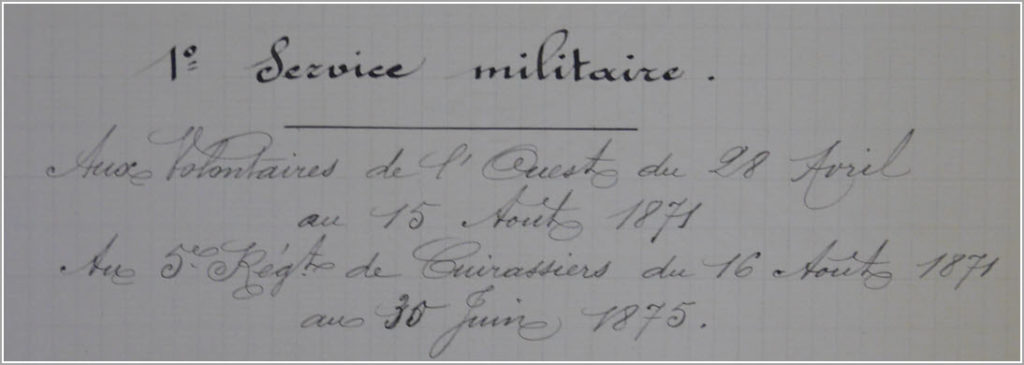 1º Service militaire.
Aux Volontaires de l'Ouest du 28 Avril
au 15 Août 1871
Au 5e Régt de Cuirassiers du 16 Août 1871
au 30 Juin 1875.